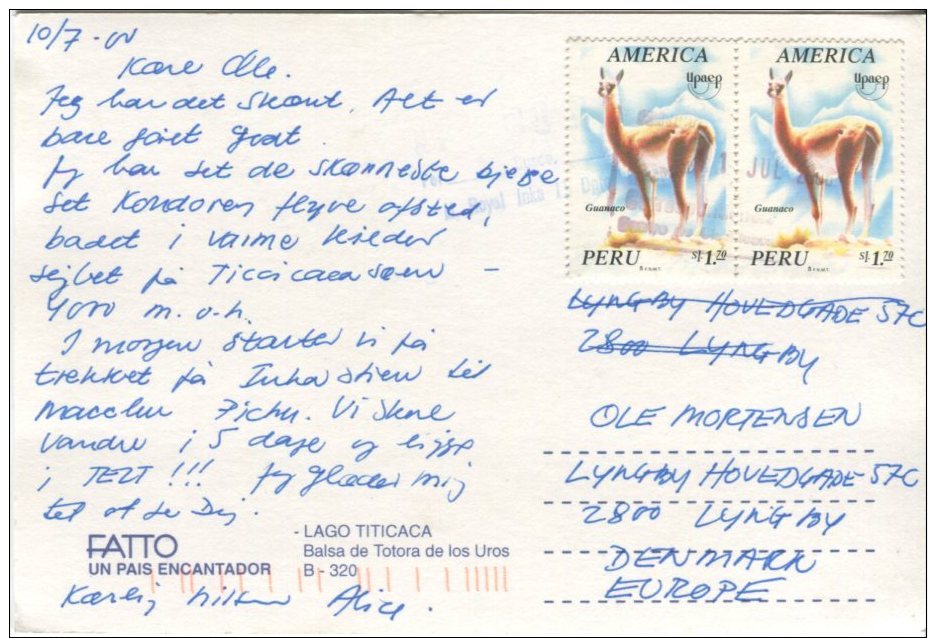 10/7-00
Kære Ole.
Jeg har det skønt. Alt er
bare gået godt.
Jeg har set de skønneste bjerge
set Kondoren flyve afsted,
badet i varme kilder
sejlet på Ticcicacasøen -
4000 m.o.h.
I morgen starter vi på
trekket på Inkastien til
Macchu Pichu. Vi skal
vandre i 5 dage og ligge
i TELT!!! Jeg glæder mig
til at se Dig.
FATTO
UN PAIS ENCANTADOR
- LAGO TITICACA
Balsa de Totora de los Uros
B - 320
Kærlig hilsen Alice.
AMERICA
Upaep
Guanaco
PERU
S/.1.70
AMERICA
Upaep
Guanaco
PERU
S/.1.70
JUL
Royal Inka
LYNGBY HOVEDGADE 57C
2800 LYNGBY
OLE MORTENSEN
LYNGBY HOVEDGADE 57C
2800 LYNGBY
DENMARK
EUROPE